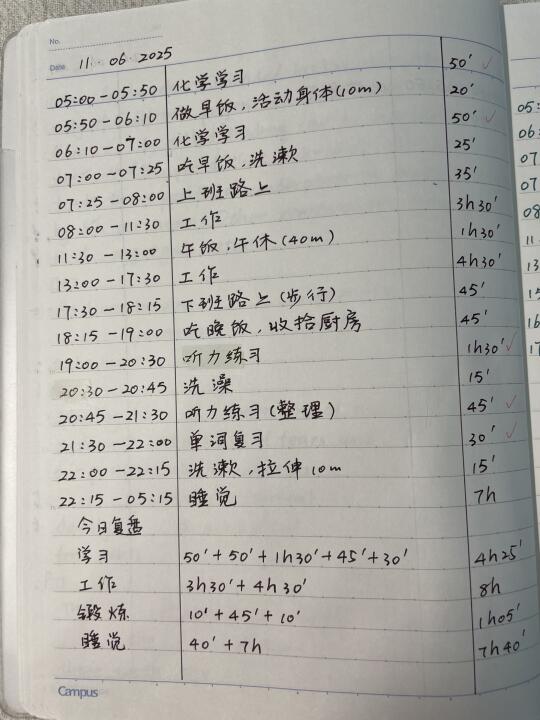 No.
Date 11 · 06 · 2025
05:00 - 05:50 化学学习 50′ ✓
05:50 - 06:10 做早饭，活动身体(10m) 20′
06:10 - 07:00 化学学习 50′ ✓
07:00 - 07:25 吃早饭，洗漱 25′
07:25 - 08:00 上班路上 35′
08:00 - 11:30 工作 3h30′
11:30 - 13:00 午饭，午休(40m) 1h30′
13:00 - 17:30 工作 4h30′
17:30 - 18:15 下班路上(步行) 45′
18:15 - 19:00 吃晚饭，收拾厨房 45′
19:00 - 20:30 听力练习 1h30′ ✓
20:30 - 20:45 洗澡 15′
20:45 - 21:30 听力练习(整理) 45′ ✓
21:30 - 22:00 单词复习 30′ ✓
22:00 - 22:15 洗漱，拉伸10m 15′
22:15 - 05:15 睡觉 7h
今日复盘
学习 50′ + 50′ + 1h30′ + 45′ + 30′ 4h25′
工作 3h30′ + 4h30′ 8h
锻炼 10′ + 45′ + 10′ 1h05′
睡觉 40′ + 7h 7h40′
Campus